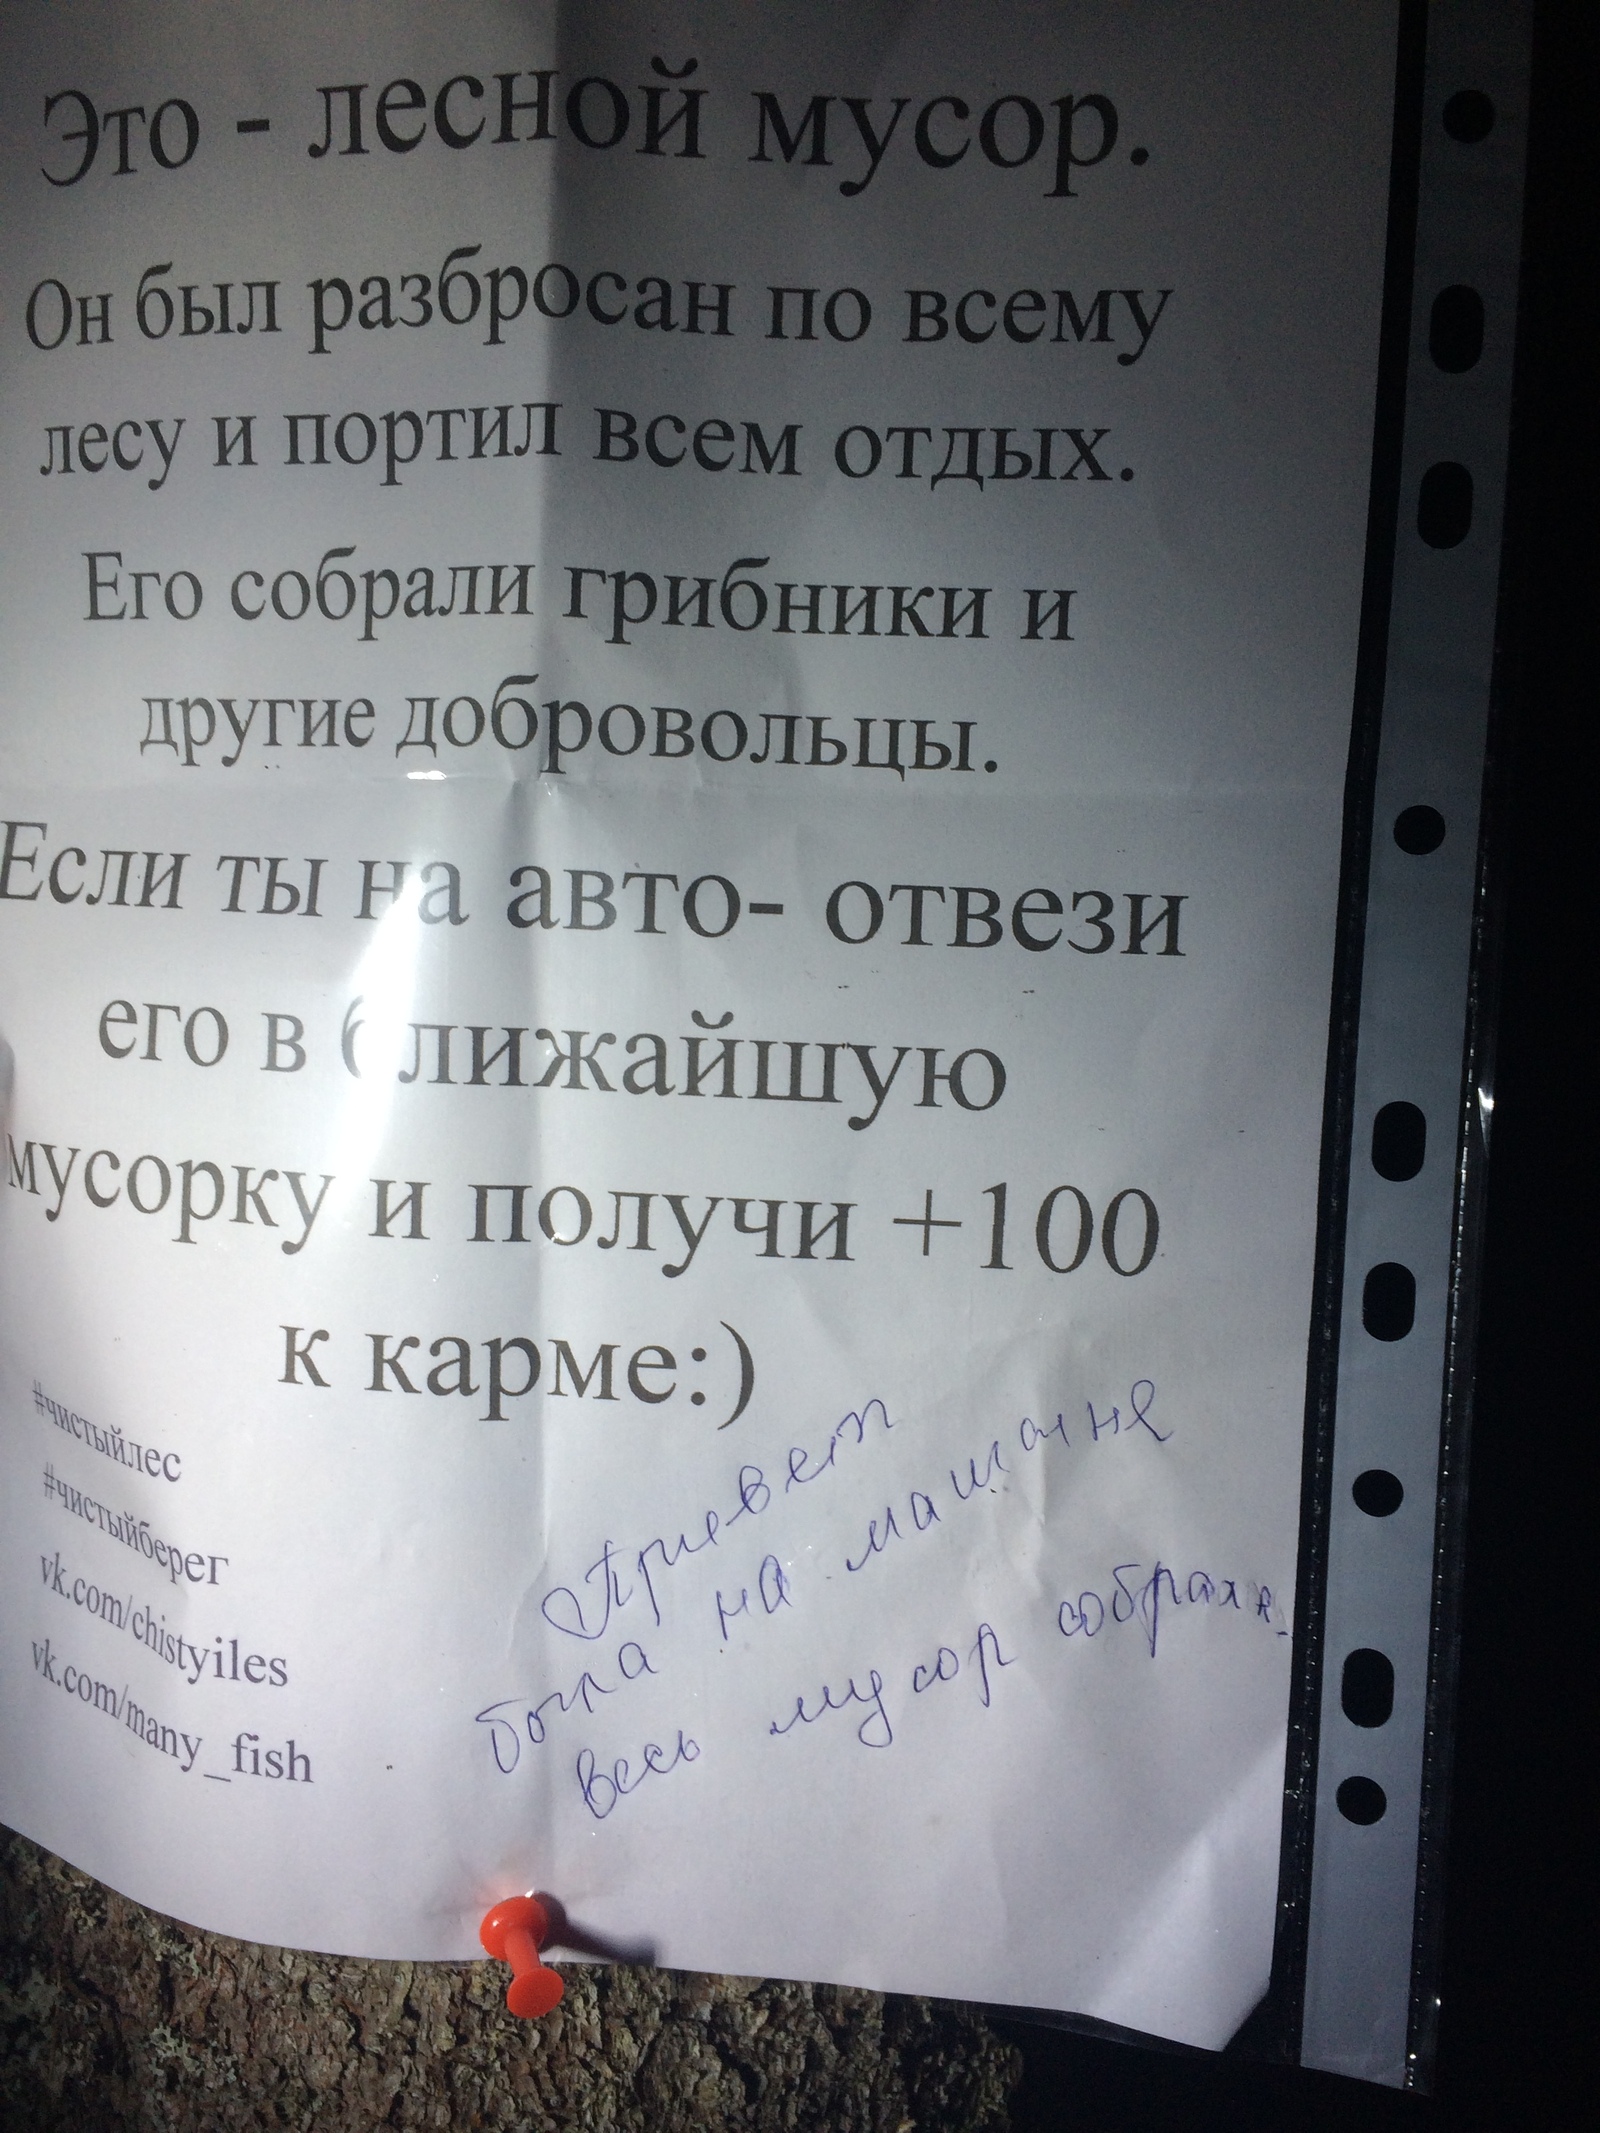 Это - лесной мусор.
Он был разбросан по всему
лесу и портил всем отдых.
Его собрали грибники и
другие добровольцы.
Если ты на авто- отвези
его в ближайшую
мусорку и получи +100
к карме:)
#чистыйлес
#чистыйберег
vk.com/chistyiles
vk.com/many_fish
Привет
была на машине
весь мусор собрала